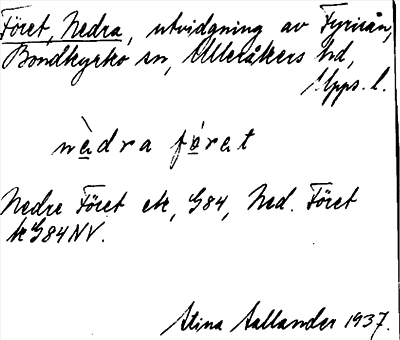 Föret, Nedra, utvidgning av Fyrisån,
Bondkyrko sn, Ulleråkers hd,
Upps. l.
nèdra fö́ret
Nedre Föret ek, G84, Ned. Föret
tk G84 NV.
Stina Aallander 1937.